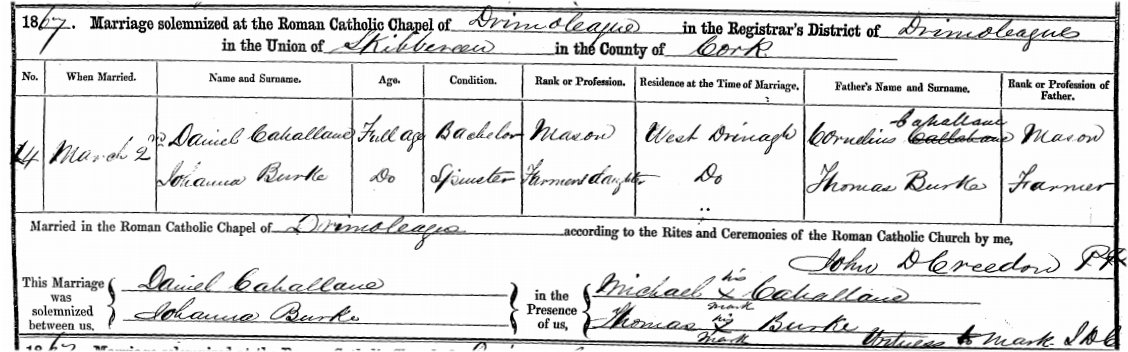 1867. Marriage solemnized at the Roman Catholic Chapel of Drimoleague in the Registrar's District of Drimoleague
in the Union of Skibbereen in the County of Cork
No. When Married. Name and Surname. Age. Condition. Rank or Profession. Residence at the Time of Marriage. Father's Name and Surname. Rank or Profession of Father.
14 March 2nd Daniel Cahallane Full age Bachelor Mason West Drinagh Cornelius Callahane Cahallane Mason
Johanna Burke Do Spinster Farmers daughter Do Thomas Burke Farmer
Married in the Roman Catholic Chapel of Drimoleague according to the Rites and Ceremonies of the Roman Catholic Church by me,
John D Creedon P P
This Marriage was solemnized between us, Daniel Cahallane in the Presence of us, Michael his X mark Cahallane
Johanna Burke Thomas his X mark Burke Witness to mark J D C
1867